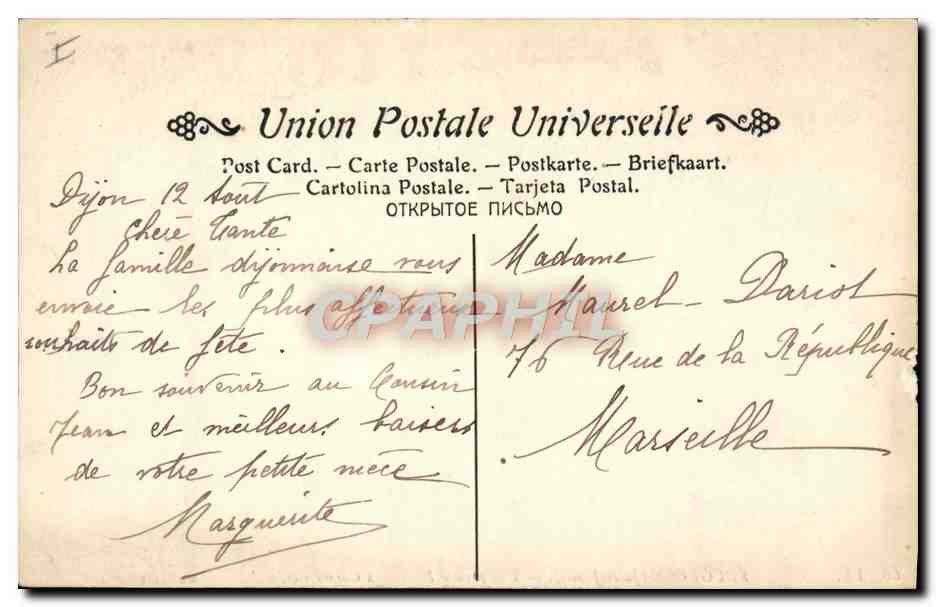 I
Union Postale Universelle
Post Card. – Carte Postale. – Postkarte. – Briefkaart.
Cartolina Postale. – Tarjeta Postal.
ОТКРЫТОЕ ПИСЬМО
Dijon 12 Août
Chère Tante
La famille dijonnaise vous
envoie les plus affectueux
souhaits de fête.
Bon souvenir au Cousin
Jean et meilleurs baisers
de votre petite nièce
Marguerite
Madame
Maurel-Dariot
76 Rue de la République
Marseille
CPAPHIL